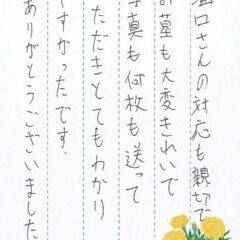 口さんの対応も親切で
お墓も大変きれいで
写真も何枚も送って
ただきとてもわかり
やすかったです.
ありがとうございました